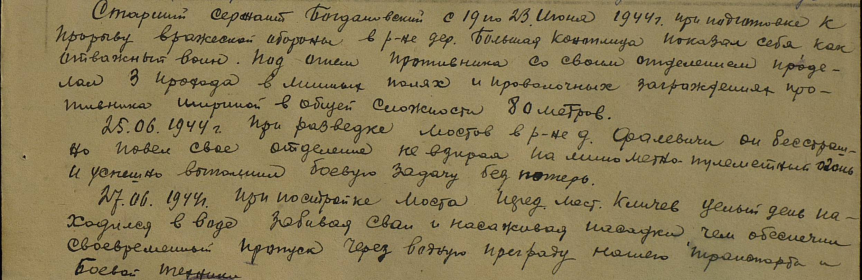 Старший сержант Богдановский с 19 по 23 июня 1944г. при подготовке к
прорыву вражеской обороны в р-не дер. Большая Конотлица показал себя как
отважный воин. Под огнем противника со своим отделением проде-
лал 3 прохода в минных полях и проволочных заграждениях про-
тивника шириной в общей сложности 80 метров.
25.06.1944г. При разведке мостов в р-не д. Фалевичи он бесстраш-
но повел свое отделение не взирая на минометно-пулеметный огонь
и успешно выполнил боевую задачу без потерь.
27.06.1944г. При постройке моста мест. Кличев целый день на-
ходился в воде забивая сваи и насаживая насадки чем обеспечил
своевременный пропуск через водную преграду нашего транспорта и
боевой техники